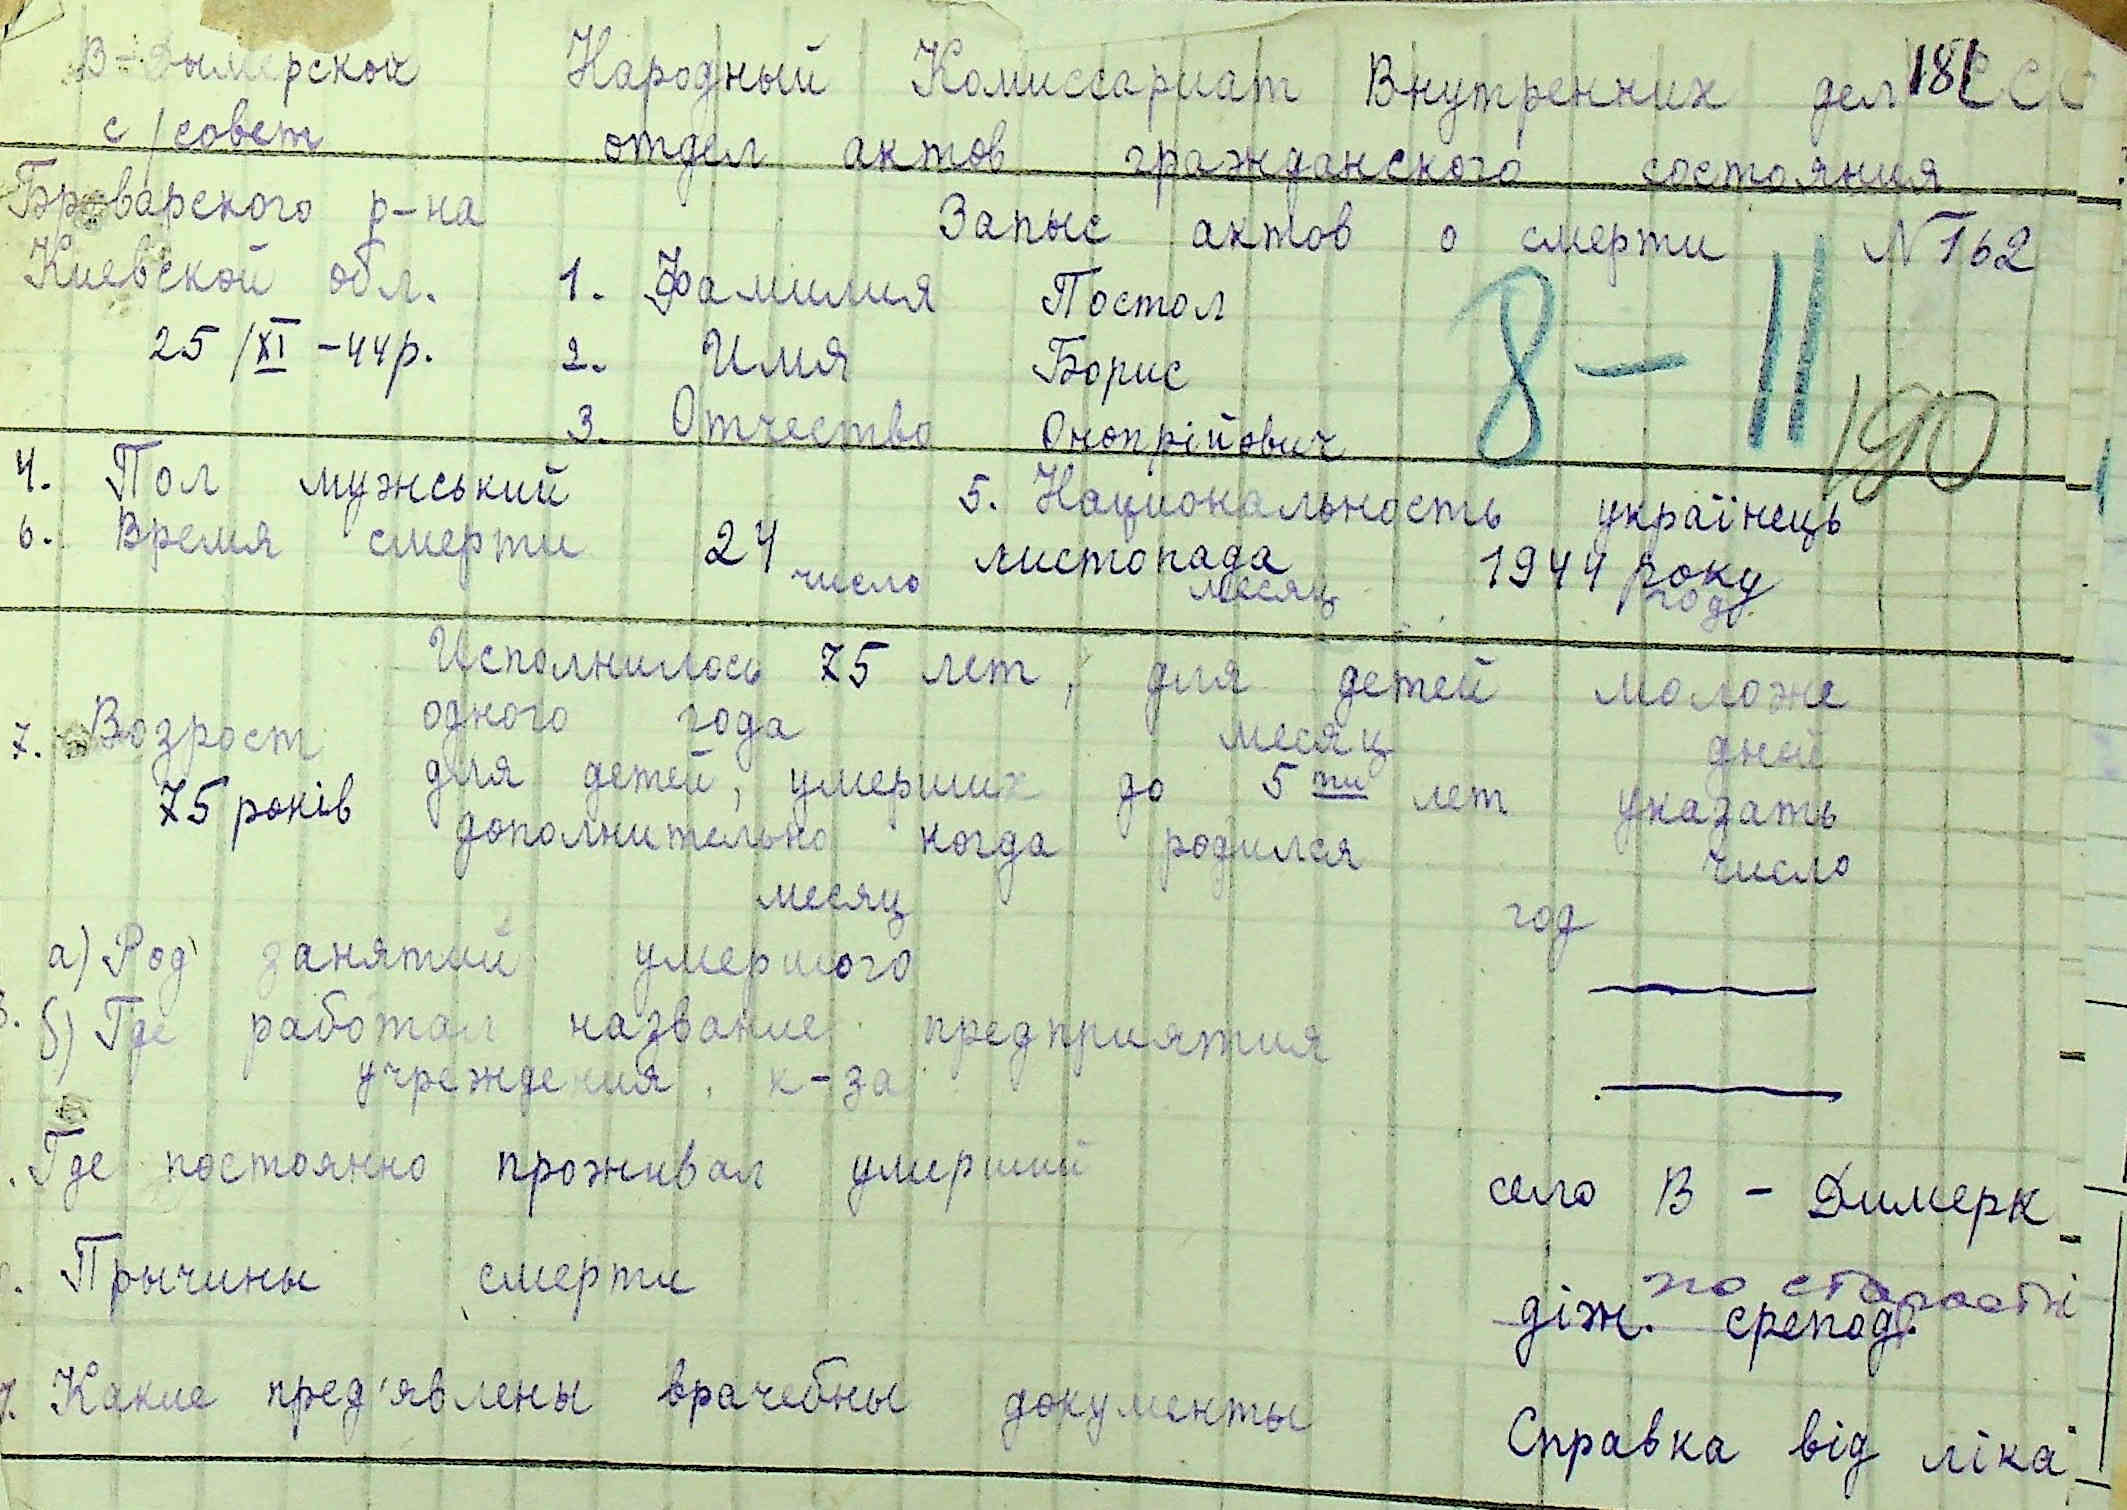 В-Дымерской Народный Комиссариат Внутренних дел ССС 181
с/совет отдел актов гражданского состояния
Броварского р-на Запыс актов о смерти N 162
Киевской обл. 1. Фамилия Постол
8 - 11
25/XI -44р. 2. Имя Борис
190
3. Отчество Онопрійович
4. Пол мужський 5. Национальность українець
6. Время смерти 24 листопада 1944 року
число месяц год.
Исполнилось 75 лет, для детей моложе
7. Возрост одного года месяц дней
для детей, умерших до 5 ти лет указать
75 років дополнительно когда родился число
месяц год
а) Род занятий умершого
б) Где работал название предприятия
учреждения, к-за
Где постоянно проживал умерший село В - Димерк
по старасті
Прычины смерти діж.
Какие пред'явлены врачебны документы Справка від ліка